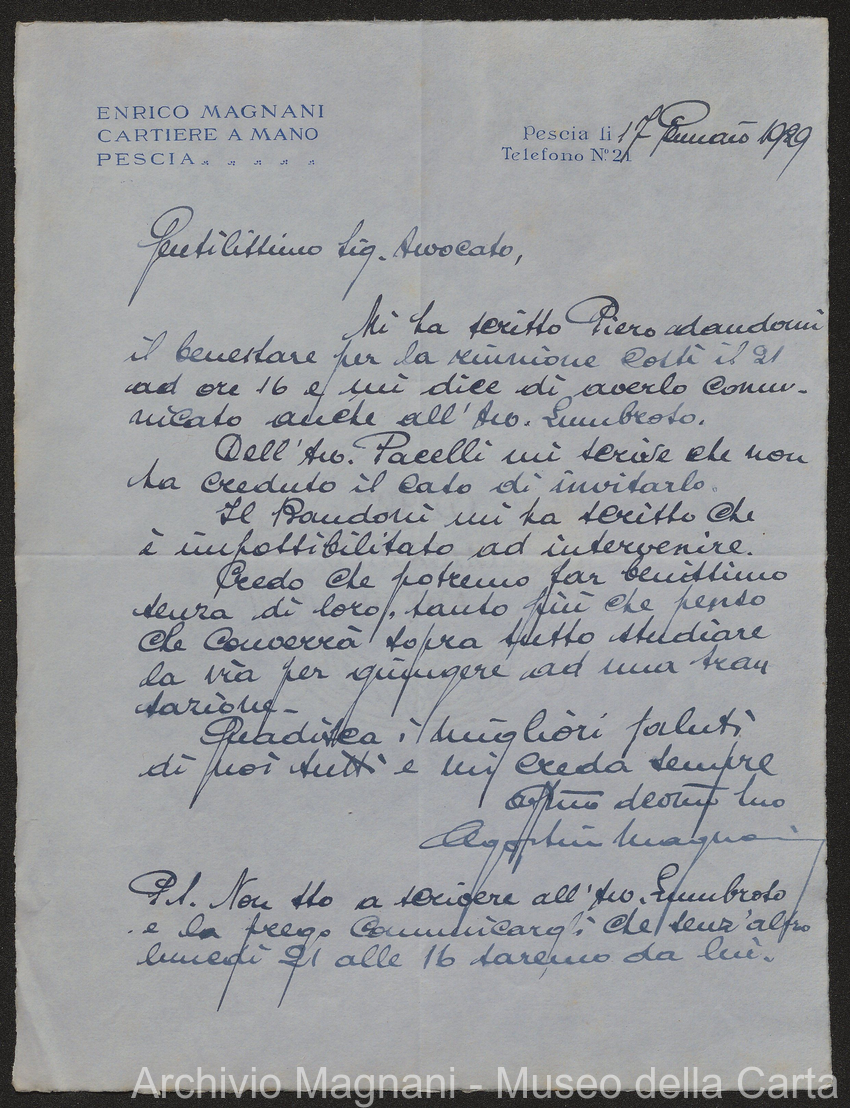 ENRICO MAGNANI
CARTIERE A MANO
PESCIA
Pescia li 17 Gennaio 1929
Telefono N.º 21
Gentilissimo Sig. Avvocato,
Mi ha scritto Piero dandomi
il benestare per la riunione costì il 21
ad ore 16 e mi dice di averlo comu-
nicato anche all'Avv. Lumbroso.
Dell'Avv. Pacelli mi scrive che non
ha creduto il caso di invitarlo.
Il Bandoni mi ha scritto che
è impossibilitato ad intervenire.
Credo che potremo far benissimo
senza di loro, tanto più che penso
che converrà sopra tutto studiare
la via per giungere ad una tran
sazione.
Gradisca i migliori saluti
di noi tutti e mi creda sempre
devmo suo
Agostino Magnani
P.S. Non sto a scrivere all'Avv. Lumbroso
e la prego comunicargli che senz'altro
lunedì 21 alle 16 saremo da lui.
Archivio Magnani - Museo della Carta